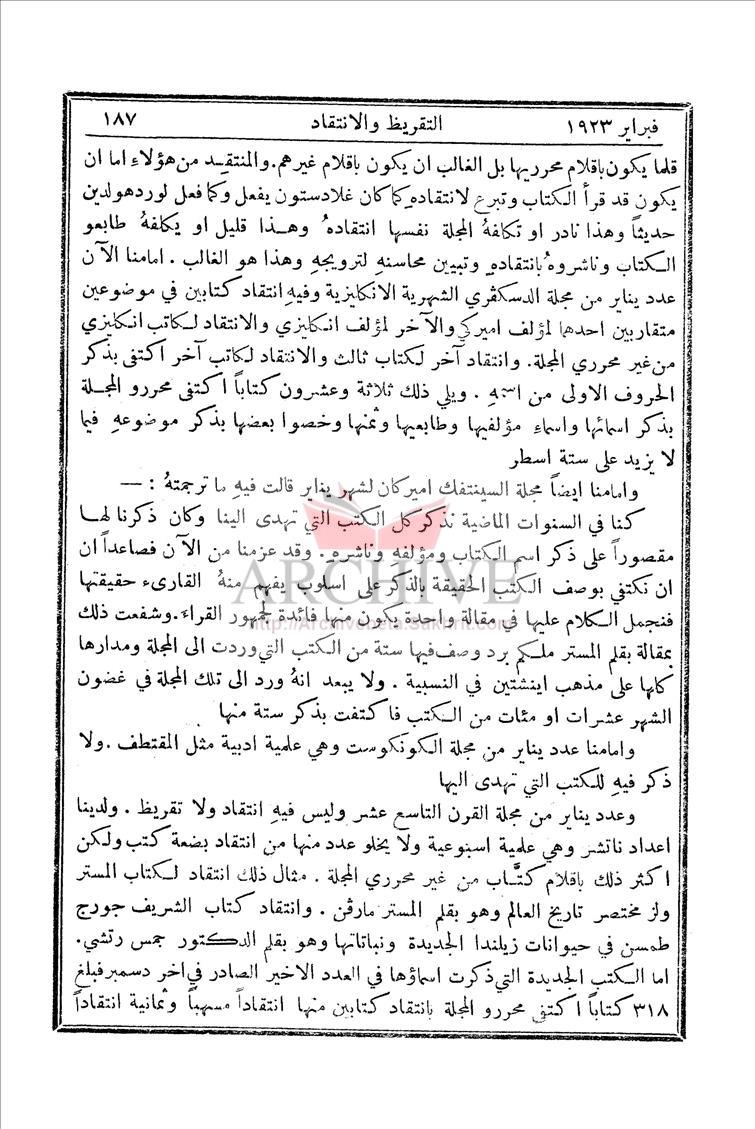 فبراير ١٩٢٣ التقريظ والانتقاد ١٨٧
قلما يكون باقلام محرريها بل الغالب ان يكون باقلام غيرهم. والمنتقد من هؤلاء اما ان
يكون قد قرأ الكتاب وتبرع لانتقاده كما كان غلادستون يفعل وكما فعل لورد هولدين
حديثاً وهذا نادر او تكلفهُ المجلة نفسها انتقادهُ وهذا قليل او يكلفهُ طابعو
الكتاب وناشروهُ بانتقادهِ وتبيين محاسنهِ لترويجهِ وهذا هو الغالب . امامنا الآن
عدد يناير من مجلة الدسكڤري الشهرية الانكليزية وفيهِ انتقاد كتابين في موضوعين
متقاربين احدهما لمؤلف اميركي والآخر لمؤلف انكليزي والانتقاد لكاتب انكليزي
من غير محرري المجلة. وانتقاد آخر لكتاب ثالث والانتقاد لكاتب آخر اكتفى بذكر
الحروف الاولى من اسمهِ . ويلي ذلك ثلاثة وعشرون كتاباً اكتفى محررو المجلة
بذكر اسمائها واسماء مؤلفيها وطابعيها وثمنها وخصوا بعضها بذكر موضوعهِ فيما
لا يزيد على ستة اسطر
وامامنا ايضاً مجلة السينتفك اميركان لشهر يناير قالت فيهِ ما ترجمتهُ : —
كنا في السنوات الماضية نذكر كل الكتب التي تهدى الينا وكان ذكرنا لها
مقصوراً على ذكر اسم الكتاب ومؤلفه وناشره . وقد عزمنا من الآن فصاعداً ان
ان نكتفي بوصف الكتب الحقيقة بالذكر على اسلوب يفهم منهُ القارىء حقيقتها
فنجمل الكلام عليها في مقالة واحدة يكون منها فائدة لجمهور القراء. وشفعت ذلك
بمقالة بقلم المستر ملكم برد وصف فيها ستة من الكتب التي وردت الى المجلة ومدارها
كلها على مذهب اينشتين في النسبية . ولا يبعد انهُ ورد الى تلك المجلة في غضون
الشهر عشرات او مئات من الكتب فاكتفت بذكر ستة منها
وامامنا عدد يناير من مجلة الكونكوست وهي علمية ادبية مثل المقتطف . ولا
ذكر فيهِ للكتب التي تهدى اليها
وعدد يناير من مجلة القرن التاسع عشر وليس فيهِ انتقاد ولا تقريظ . ولدينا
اعداد ناتشر وهي علمية اسبوعية ولا يخلو عدد منها من انتقاد بضعة كتب ولكن
اكثر ذلك باقلام كتَّاب من غير محرري المجلة . مثال ذلك انتقاد لكتاب المستر
ولز مختصر تاريخ العالم وهو بقلم المستر مارڤن . وانتقاد كتاب الشريف جورج
طمسن في حيوانات زيلندا الجديدة ونباتاتها وهو بقلم الدكتور جمس رتشي.
اما الكتب الجديدة التي ذكرت اسماؤها في العدد الاخير الصادر في اخر دسمبر فبلغ
٣١٨ كتاباً اكتفى محررو المجلة بانتقاد كتابين منها انتقاداً مسهباً وثمانية انتقاداً
ARCHIVE
http://Archivebeta.Sakhrit.com